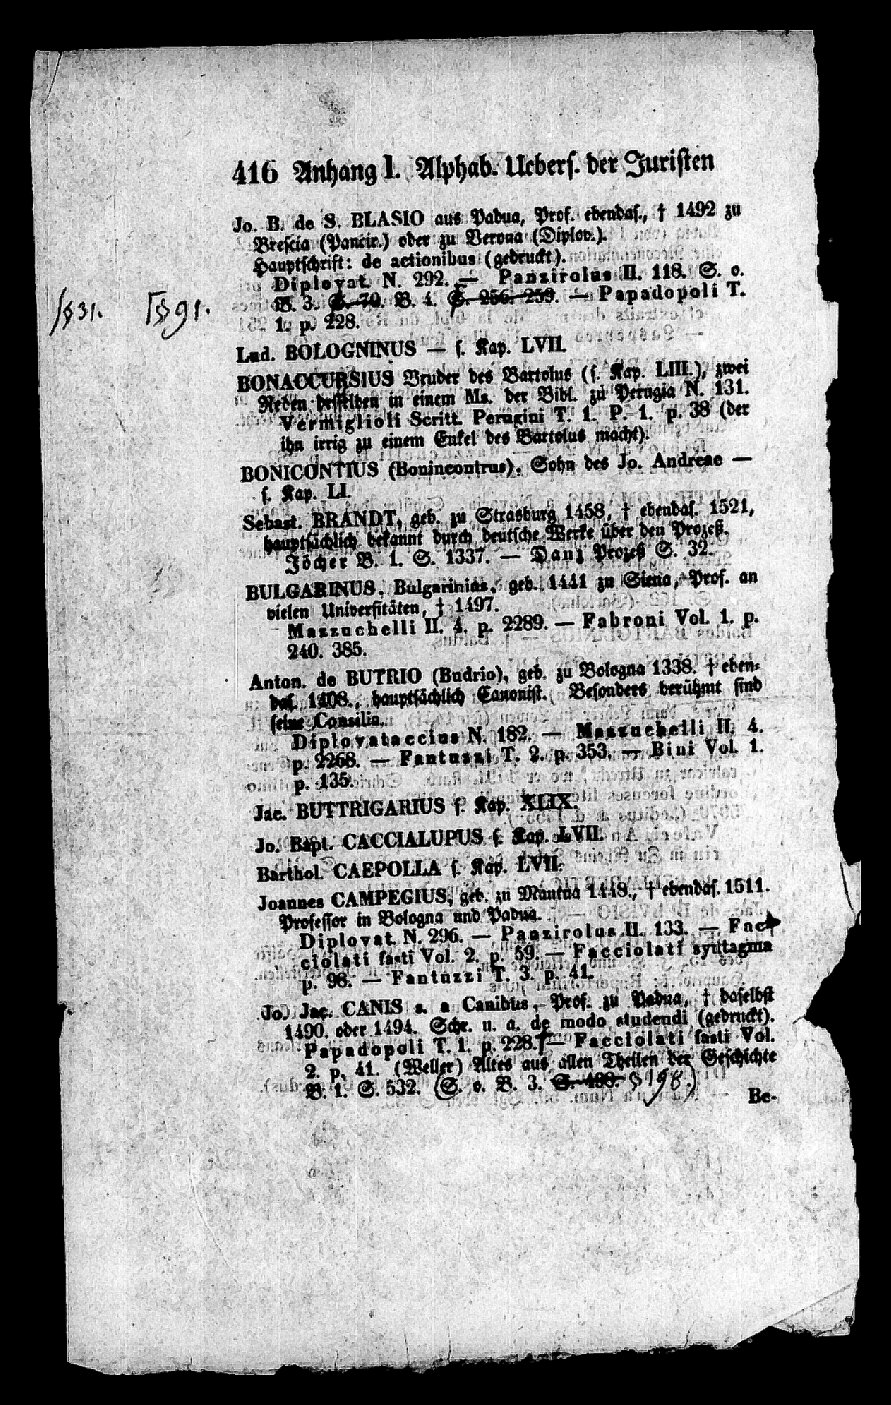 416 Anhang I. Alphab. Uebers. der Juristen
Jo. B. de S. BLASIO aus Padua, Prof. ebendas., † 1492 zu
Brescia (Pancir.) oder zu Verona (Diplov.).
Hauptschrift: de actionibus (gedruckt).
Diplovat. N. 292. — Panzirolus II. 118. S. o.
B. 3. S. 79. B. 4. S. 256. 259. — Papadopoli T.
§ 31. § 91.
1. p. 228.
Lud. BOLOGNINUS — s. Kap. LVII.
BONACCURSIUS Bruder des Bartolus (s. Kap. LIII.), zwei
Reden desselben in einem Ms. der Bibl. zu Perugia N. 131.
Vermiglioli Scritt. Perugini T. 1. P. 1. p. 38 (der
ihn irrig zu einem Enkel des Bartolus macht).
BONICONTIUS (Bonincontrus), Sohn des Jo. Andreae —
s. Kap. LI.
Sebast. BRANDT, geb. zu Strasburg 1458, † ebendas. 1521,
hauptsächlich bekannt durch deutsche Werke über den Prozeß.
Jöcher B. 1. S. 1337. — Danz Prozeß S. 32.
BULGARINUS, Bulgarinius, geb. 1441 zu Siena, Prof. an
vielen Universitäten, † 1497.
Mazzuchelli II. 4. p. 2289. — Fabroni Vol. 1. p.
240. 385.
Anton. de BUTRIO (Budrio), geb. zu Bologna 1338. † eben-
das. 1408., hauptsächlich Canonist. Besonders berühmt sind
seine Consilia.
Diplovataccius N. 182. — Mazzuchelli II. 4.
p. 2268. — Fantuzzi T. 2. p. 353. — Bini Vol. 1.
p. 135.
Jac. BUTTRIGARIUS s. Kap. XLIX.
Jo. Bapt. CACCIALUPUS s. Kap. LVII.
Barthol. CAEPOLLA s. Kap. LVII.
Joannes CAMPEGIUS, geb. zu Mantua 1448., † ebendas. 1511.
Professor in Bologna und Padua.
Diplovat. N. 296. — Panzirolus II. 133. — Fac-
ciolati fasti Vol. 2. p. 59. — Facciolati syntagma
p. 98. — Fantuzzi T. 3. p. 41.
Jo. Jac. CANIS s. a Canibus, Prof. zu Padua, † daselbst
1490. oder 1494. Schr. u. a. de modo studendi (gedruckt).
Papadopoli T. 1. p. 228. — Facciolati fasti Vol.
2. p. 41. (Weller) Altes aus allen Theilen der Geschichte
B. 1. S. 532. (S. o. B. 3. S. 498. § 198.)
Be-